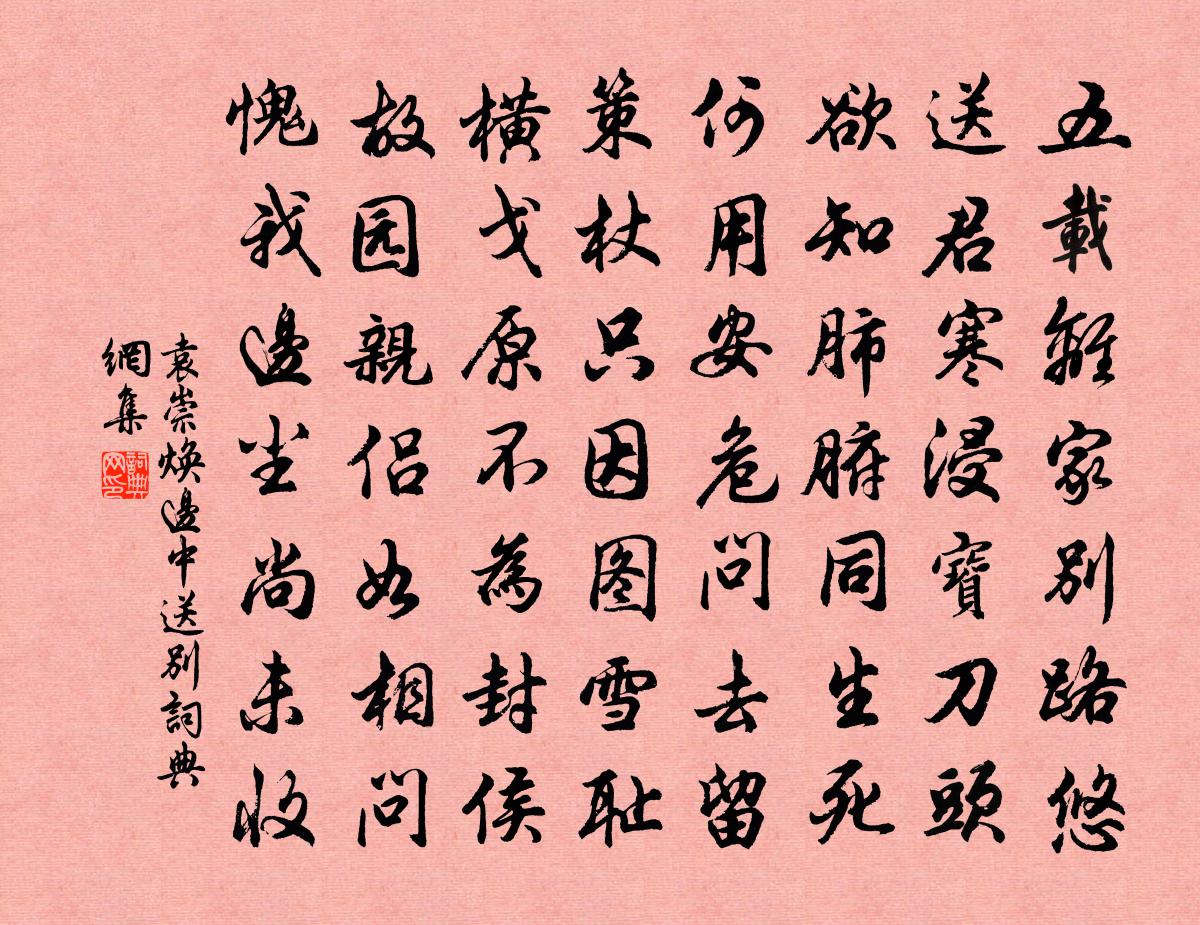 五載離家別路悠
送君寒浸寶刀頭
欲知肺腑同生死
何用安危問去留
策杖只因图雪耻
橫戈原不為封侯
故园親侣如相問
愧我邊尘尚未收
袁崇煥邊中送別詞典
網集
詞典网印